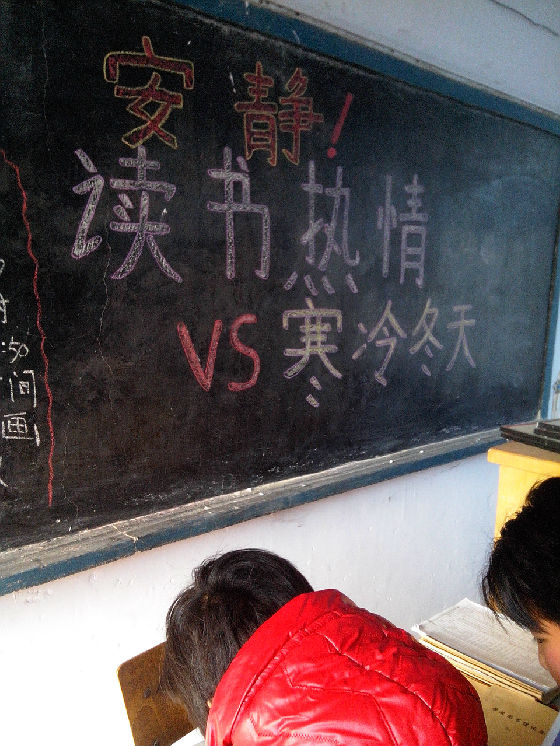 安静!
读书热情
VS寒冷冬天
:50
间
画